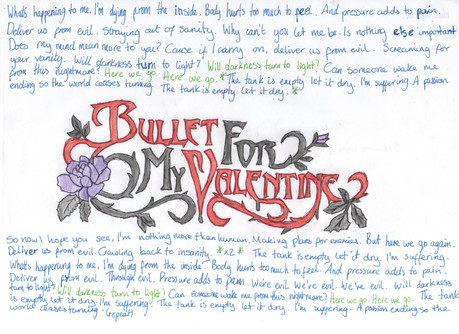 What's happening to me. I'm dying from the inside. Body hurts too much to feel. And pressure adds to pain.
Deliver us from evil. Straying out of sanity. Why can't you let me be. Is nothing else important
Does my mind mean more to you? Cause if I carry on, deliver us from evil. Screaming for
your vanity. Will darkness turn to light? Will darkness turn to light? Can someone wake me
from this nightmare? Here we go. Here we go. *The tank is empty let it dry. I'm suffering. A passion
ending so the world ceases turning. The tank is empty let it dry.*
BULLET FOR
MY VALENTINE
So now I hope you see, I'm nothing more than human. Making plans for enemies. But here we go again.
Deliver us from evil. Crawling back to insanity. *x2* The tank is empty let it dry, I'm suffering.
What's happening to me, I'm dying from the inside. Body hurts too much to feel. And pressure adds to pain.
Deliver us from evil. Through evil. Pressure adds to pain. We're evil We're evil. We're evil. Will darkness
turn to light? Will darkness turn to light? Can someone wake me from this nightmare? Here we go. Here we go. The tank
is empty let it dry, I'm suffering! The tank is empty let it dry, I'm suffering! A passion ending so the
world ceases turning. (repeat)